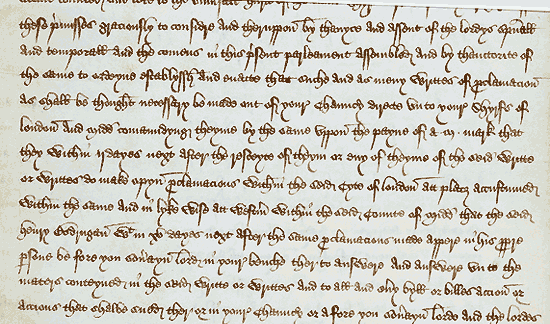 these pmisses graciously to considre and theruppon by thauyce and assent of the lordys spuall
and temporall and the comens in this psent parleament assembled and by thauctorite of
the same to ordeyne establyssh and enacte that suche and as meny writtes of pclamacion
as shall be thought necessary be made out of your Chauncy directe vnto your Shyrfs of
london and Midd comaundyng theyme by the same vppon the payne of a M mark that
they within ij dayes next after the resceyte of theym or eny of theyme of the seid writte
or writtes do make opyn pclamacions within the seid Cyte of london att placz accustumed
within the same and in lyke wise att Westm within the seid Counte of Midd that the seid
henry Bodrugan within xv dayes next after the same pclamacions made appere in his ppre
psone be fore you souayn lord in your benche ther to answere and answere vn to the
maters conteyned in the seid writte or writtes and to all and euy byll or billes accion or
accions that shalbe sued ther or in your Chauncy or afore you souayn lord and the lordes